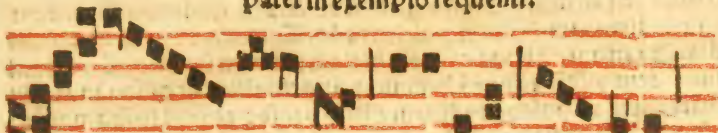 patet in exemplo sequenti.